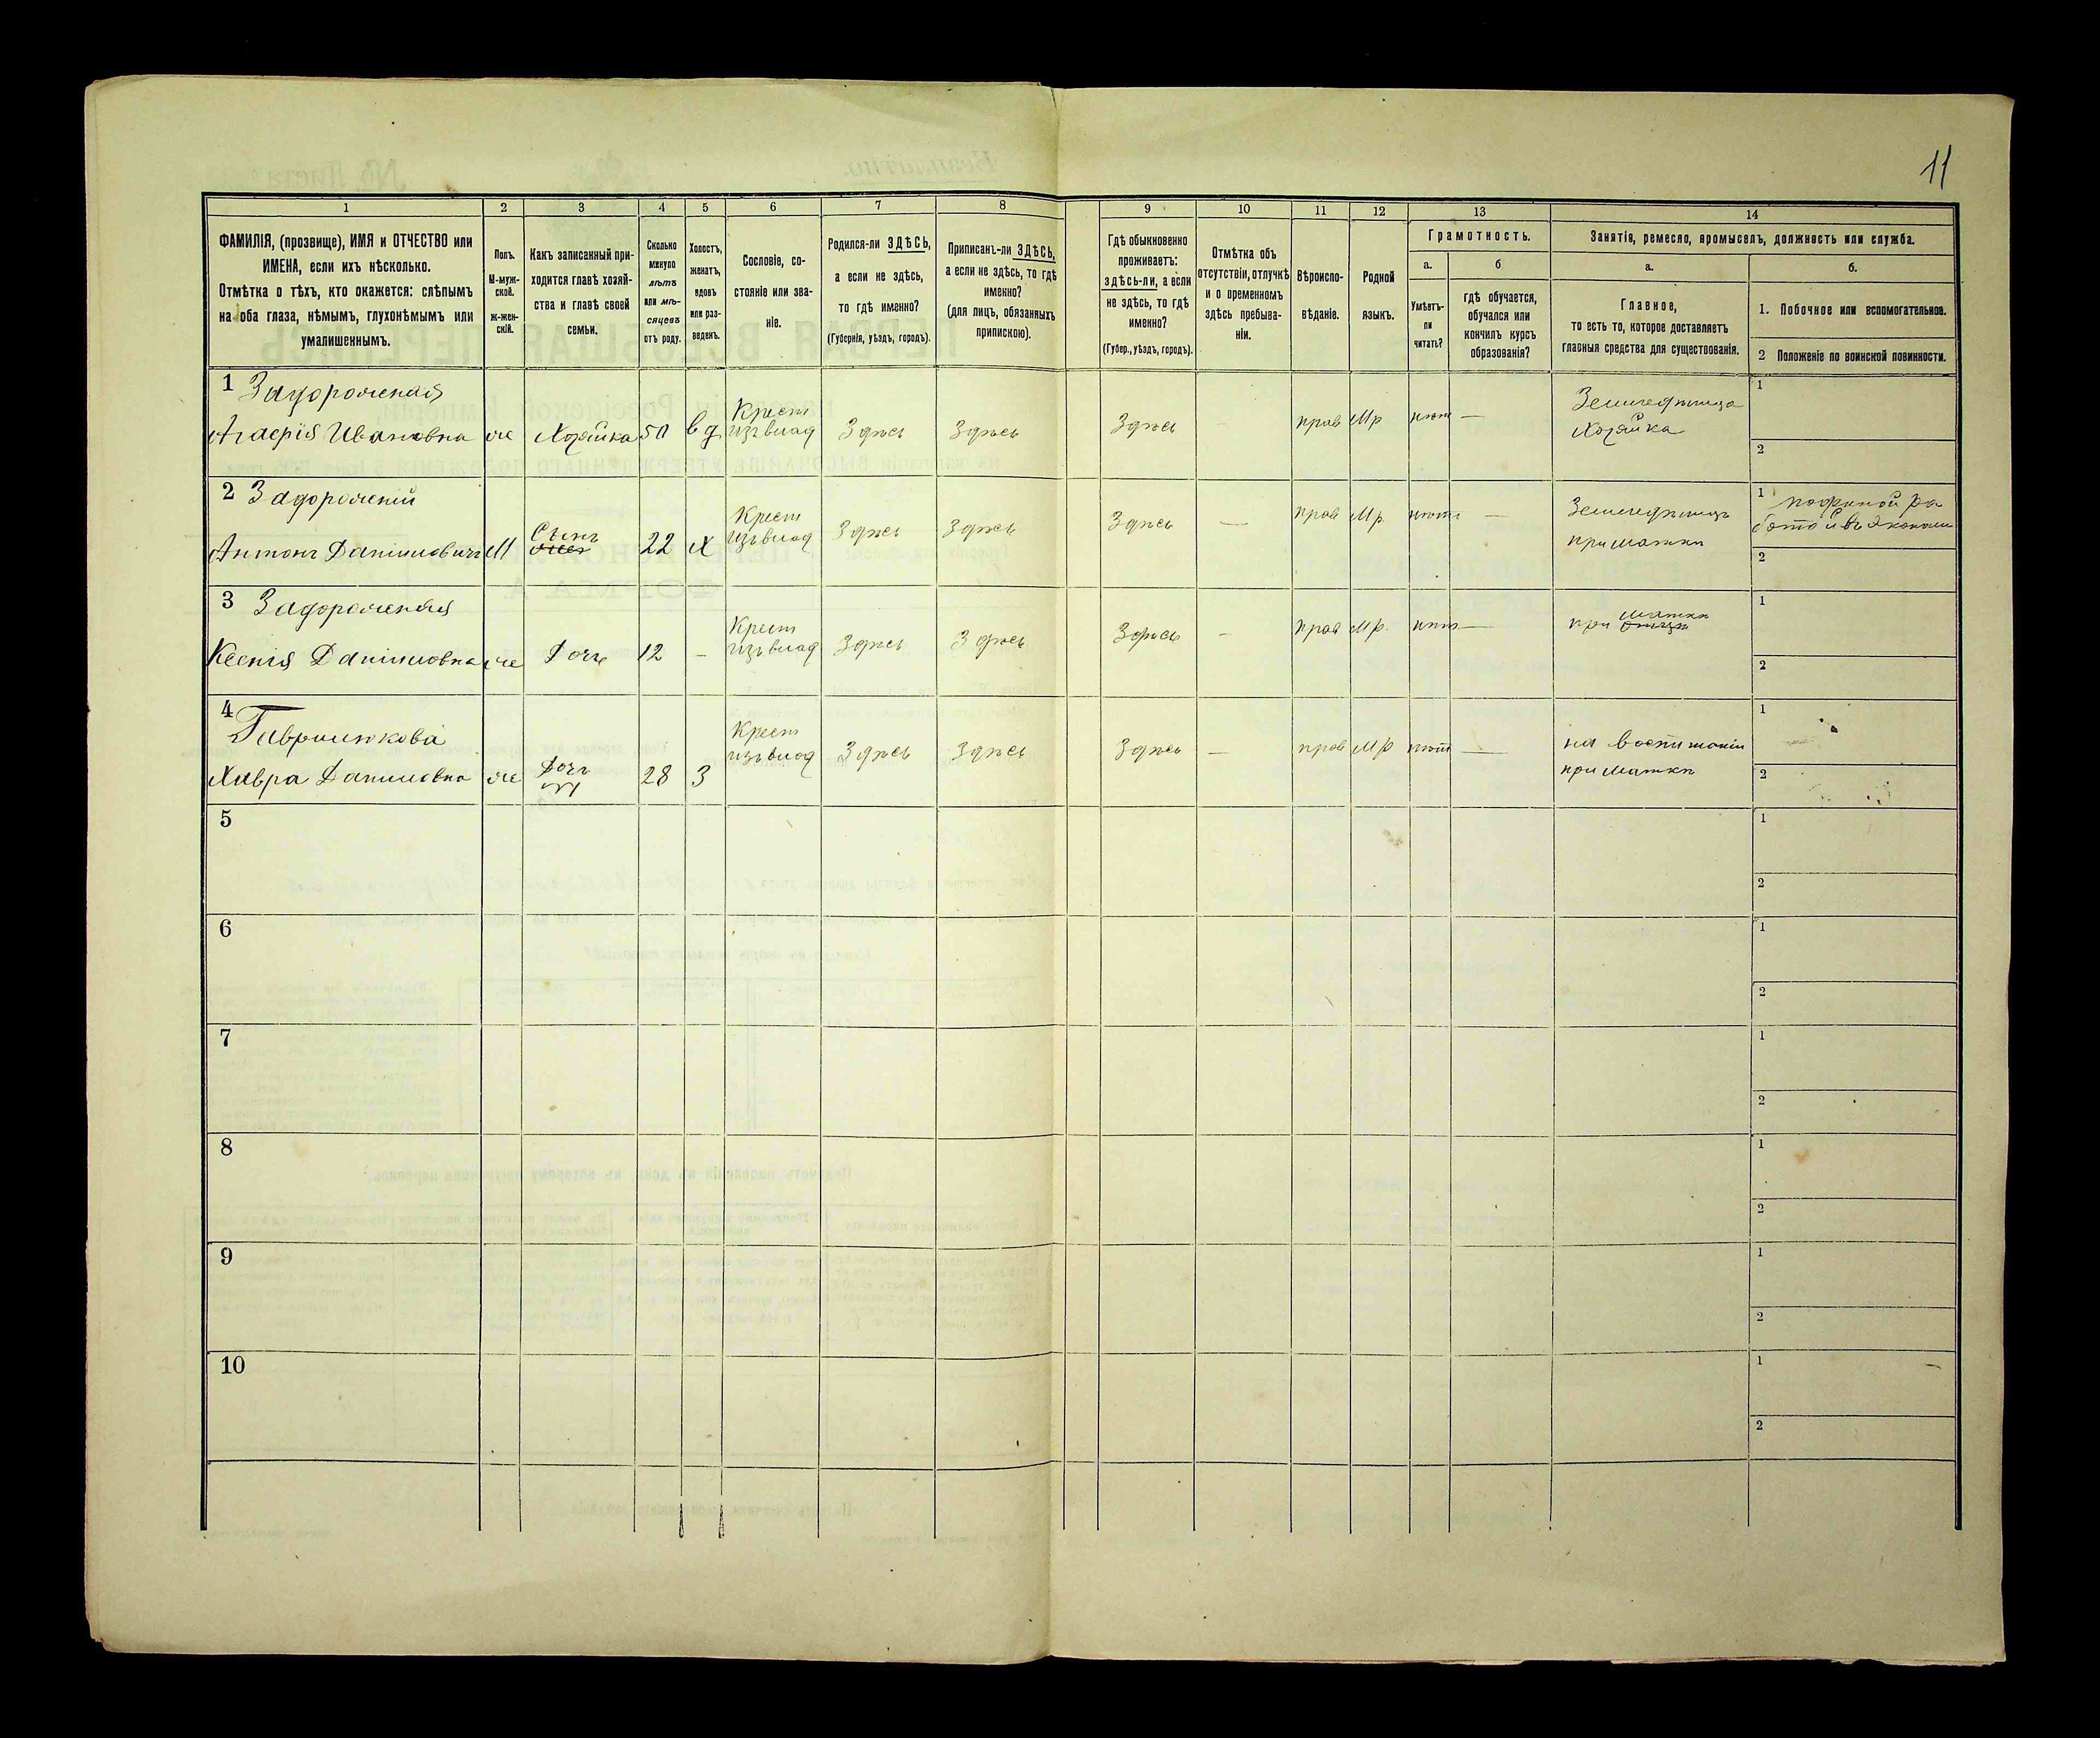 11
1 2 3 4 5 6 7 8 9 10 11 12 13 14
ФАМИЛІЯ, (прозвище), ИМЯ и ОТЧЕСТВО или
ИМЕНА, если ихъ нѣсколько.
Отмѣтка о тѣхъ, кто окажется: слѣпымъ
на оба глаза, нѣмымъ, глухонѣмымъ или
умалишеннымъ.
Полъ.
М-муж-
ской.
ж-жен-
скій.
Какъ записанный при-
ходится главѣ хозяй-
ства и главѣ своей
семьи.
Сколько
минуло
лѣтъ
или мѣ-
сяцевъ
отъ роду.
Холостъ,
женатъ,
вдовъ
или раз-
веденъ.
Сословіе, со-
стояніе или зва-
ніе.
Родился-ли ЗДѢСЬ,
а если не здѣсь,
то гдѣ именно?
(Губернія, уѣздъ, городъ).
Приписанъ-ли ЗДѢСЬ,
а если не здѣсь, то гдѣ
именно?
(для лицъ, обязанныхъ
припискою).
Гдѣ обыкновенно
проживаетъ:
здѣсь-ли, а если
не здѣсь, то гдѣ
именно?
(Губер., уѣздъ, городъ).
Отмѣтка объ
отсутствіи, отлучкѣ
и о временномъ
здѣсь пребыва-
ніи.
Вѣроиспо-
вѣданіе.
Родной
языкъ.
Грамотность.
а.
Умѣетъ-
ли
читать?
б
гдѣ обучается,
обучался или
кончилъ курсъ
образованія?
Занятія, ремесло, промыселъ, должность или служба.
а.
Главное,
то есть то, которое доставляетъ
главныя средства для существованія.
б.
1. Побочное или вспомогательное.
2 Положеніе по воинской повинности.
1 Задорожная
Агаѳія Ивановна ж Хозяйка 50 вд Крест изъ влад Здѣсь Здѣсь Здѣсь — прав Мр нѣт — Земледѣлица 1
Хозяйка 2
2 Задорожній
Антонъ Даниловичъ М Сынъ 22 Х Крест изъ влад Здѣсь Здѣсь Здѣсь — прав Мр. нѣтъ — Земледѣлецъ 1 поденной ра
при матки ботой въ экономіи
2
3 Задорожняя
Ксенія Даниловна ж Дочь 12 — Крест изъ влад Здѣсь Здѣсь Здѣсь — прав Мр. нѣт — при матки 1
2
4 Гавриленкова
Хивря Даниловна ж Дочь 28 З Крест изъ влад Здѣсь Здѣсь Здѣсь — прав Мр нѣт — на воспитаніи 1
при матки 2
5 1
2
6 1
2
7 1
2
8 1
2
9 1
2
10 1
2